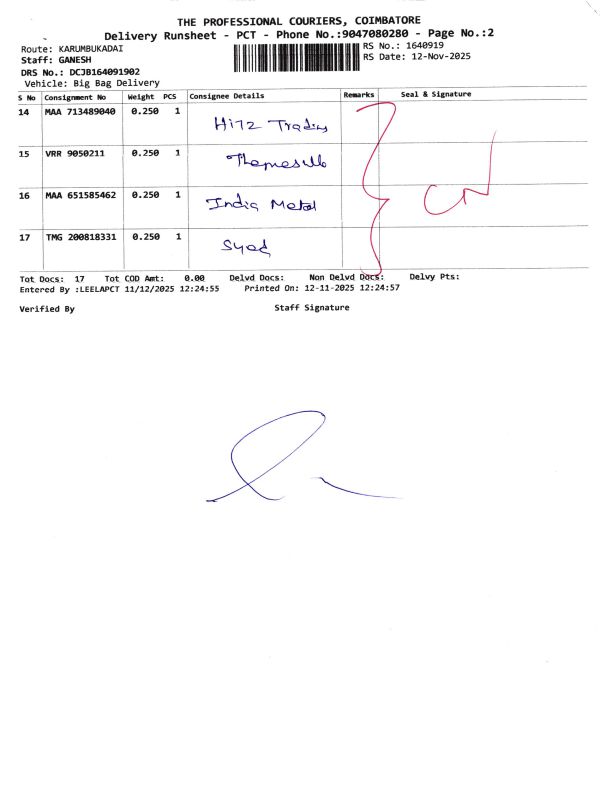 THE PROFESSIONAL COURIERS, COIMBATORE
Delivery Runsheet - PCT - Phone No.:9047080280 - Page No.:2
Route: KARUMBUKADAI
RS No.: 1640919
Staff: GANESH
RS Date: 12-Nov-2025
DRS No.: DCJB164091902
Vehicle: Big Bag Delivery
S No Consignment No Weight PCS Consignee Details Remarks Seal & Signature
14 MAA 713489040 0.250 1 Hitz Trading
15 VRR 9050211 0.250 1
16 MAA 651585462 0.250 1 India Metal
17 TMG 200818331 0.250 1 Syed
Tot Docs: 17 Tot COD Amt: 0.00 Delvd Docs: Non Delvd Docs: Delvy Pts:
Entered By :LEELAPCT 11/12/2025 12:24:55 Printed On: 12-11-2025 12:24:57
Verified By Staff Signature